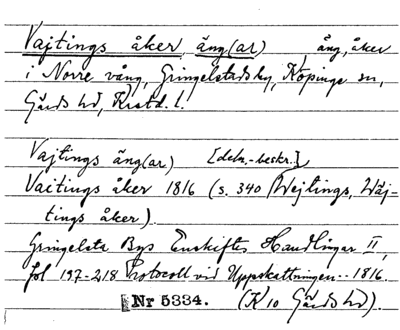 Vajtings åker, äng(ar) äng, åker
i Norre vång, Gringelstads by, Köpinge sn,
Gärds hd, Krstd. l.
Vajtings äng(ar) [deln.-beskr.]
Vaitings åker 1816 (s. 340 Wejtings, Wäj-
tings åker).
Gringelsta Bys Enskiftes Handlingar II,
fol 197-218 Protocoll vid Uppskattningen -- 1816.
Nr 5334. (K 10 Gärds hd).